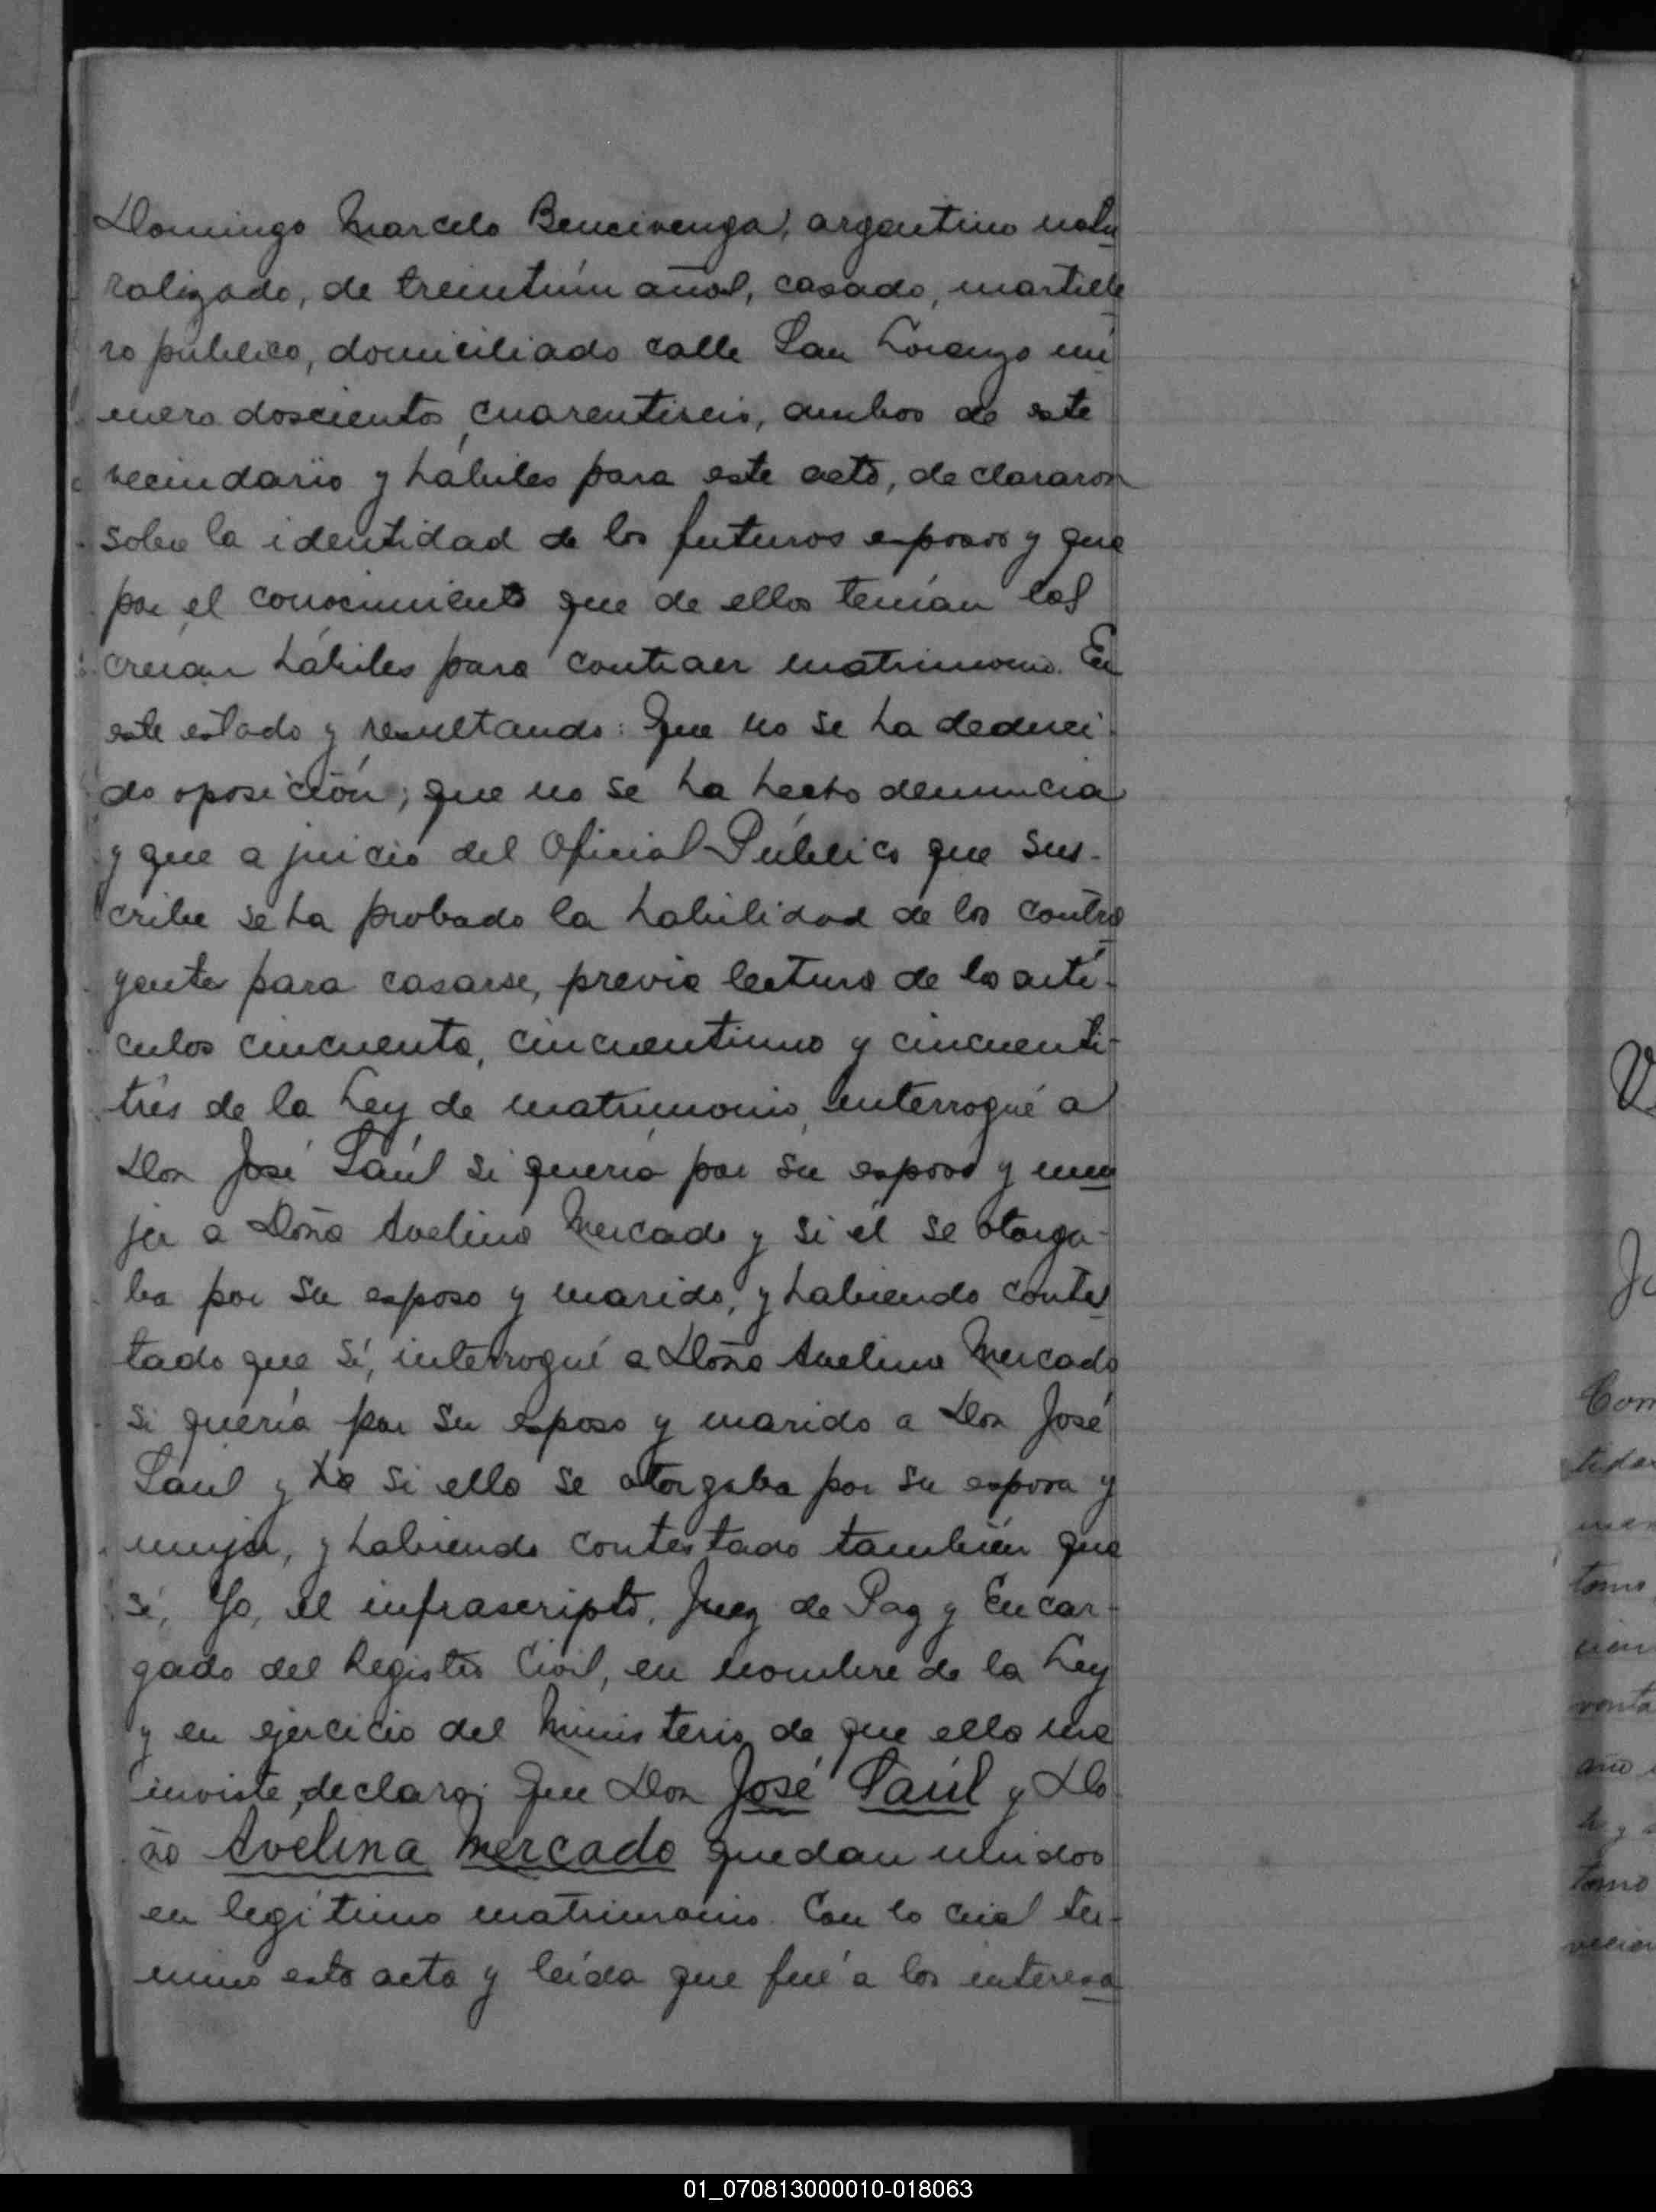 Domingo Marcelo Bencivenga, argentino natu
ralizado, de treintiún años, casado, martille
ro público, domiciliado calle San Lorenzo nú
mero doscientos cuarentiseis, ambos de este
vecindario y hábiles para este acto, declararon
sobre la identidad de los futuros esposos y que
por el conocimiento que de ellos tenían los
creían hábiles para contraer matrimonio. En
este estado y resultando: Que no se ha deduci-
do oposición; que no se ha hecho denuncia
y que a juicio del Oficial Público que sus-
cribe se ha probado la habilidad de los contra
yentes para casarse, previa lectura de los artí-
culos cincuenta, cincuentiuno y cincuenti-
trés de la Ley de matrimonio, interrogué a
Don José Saúl si quería por su esposa y mu
jer a Doña Avelina Mercado y si él se otorga-
ba por su esposo y marido, y habiendo contes
tado que sí, interrogué a Doña Avelina Mercado
si quería por su esposo y marido a Don José
Saul y si ella se otorgaba por su esposa y
mujer, y habiendo contestado también que
sí, Yo, el infrascripto, Juez de Paz y Encar-
gado del Registro Civil, en nombre de la Ley
y en ejercicio del Ministerio de que ella me
inviste, declaro: Que Don José Saúl y Do
ña Avelina Mercado quedan unidos
en legítimo matrimonio. Con lo cual ter-
mino esta acta y leída que fué a los interesa
V
J
Com
tomo
venta
año
tomo
01_070813000010-018063